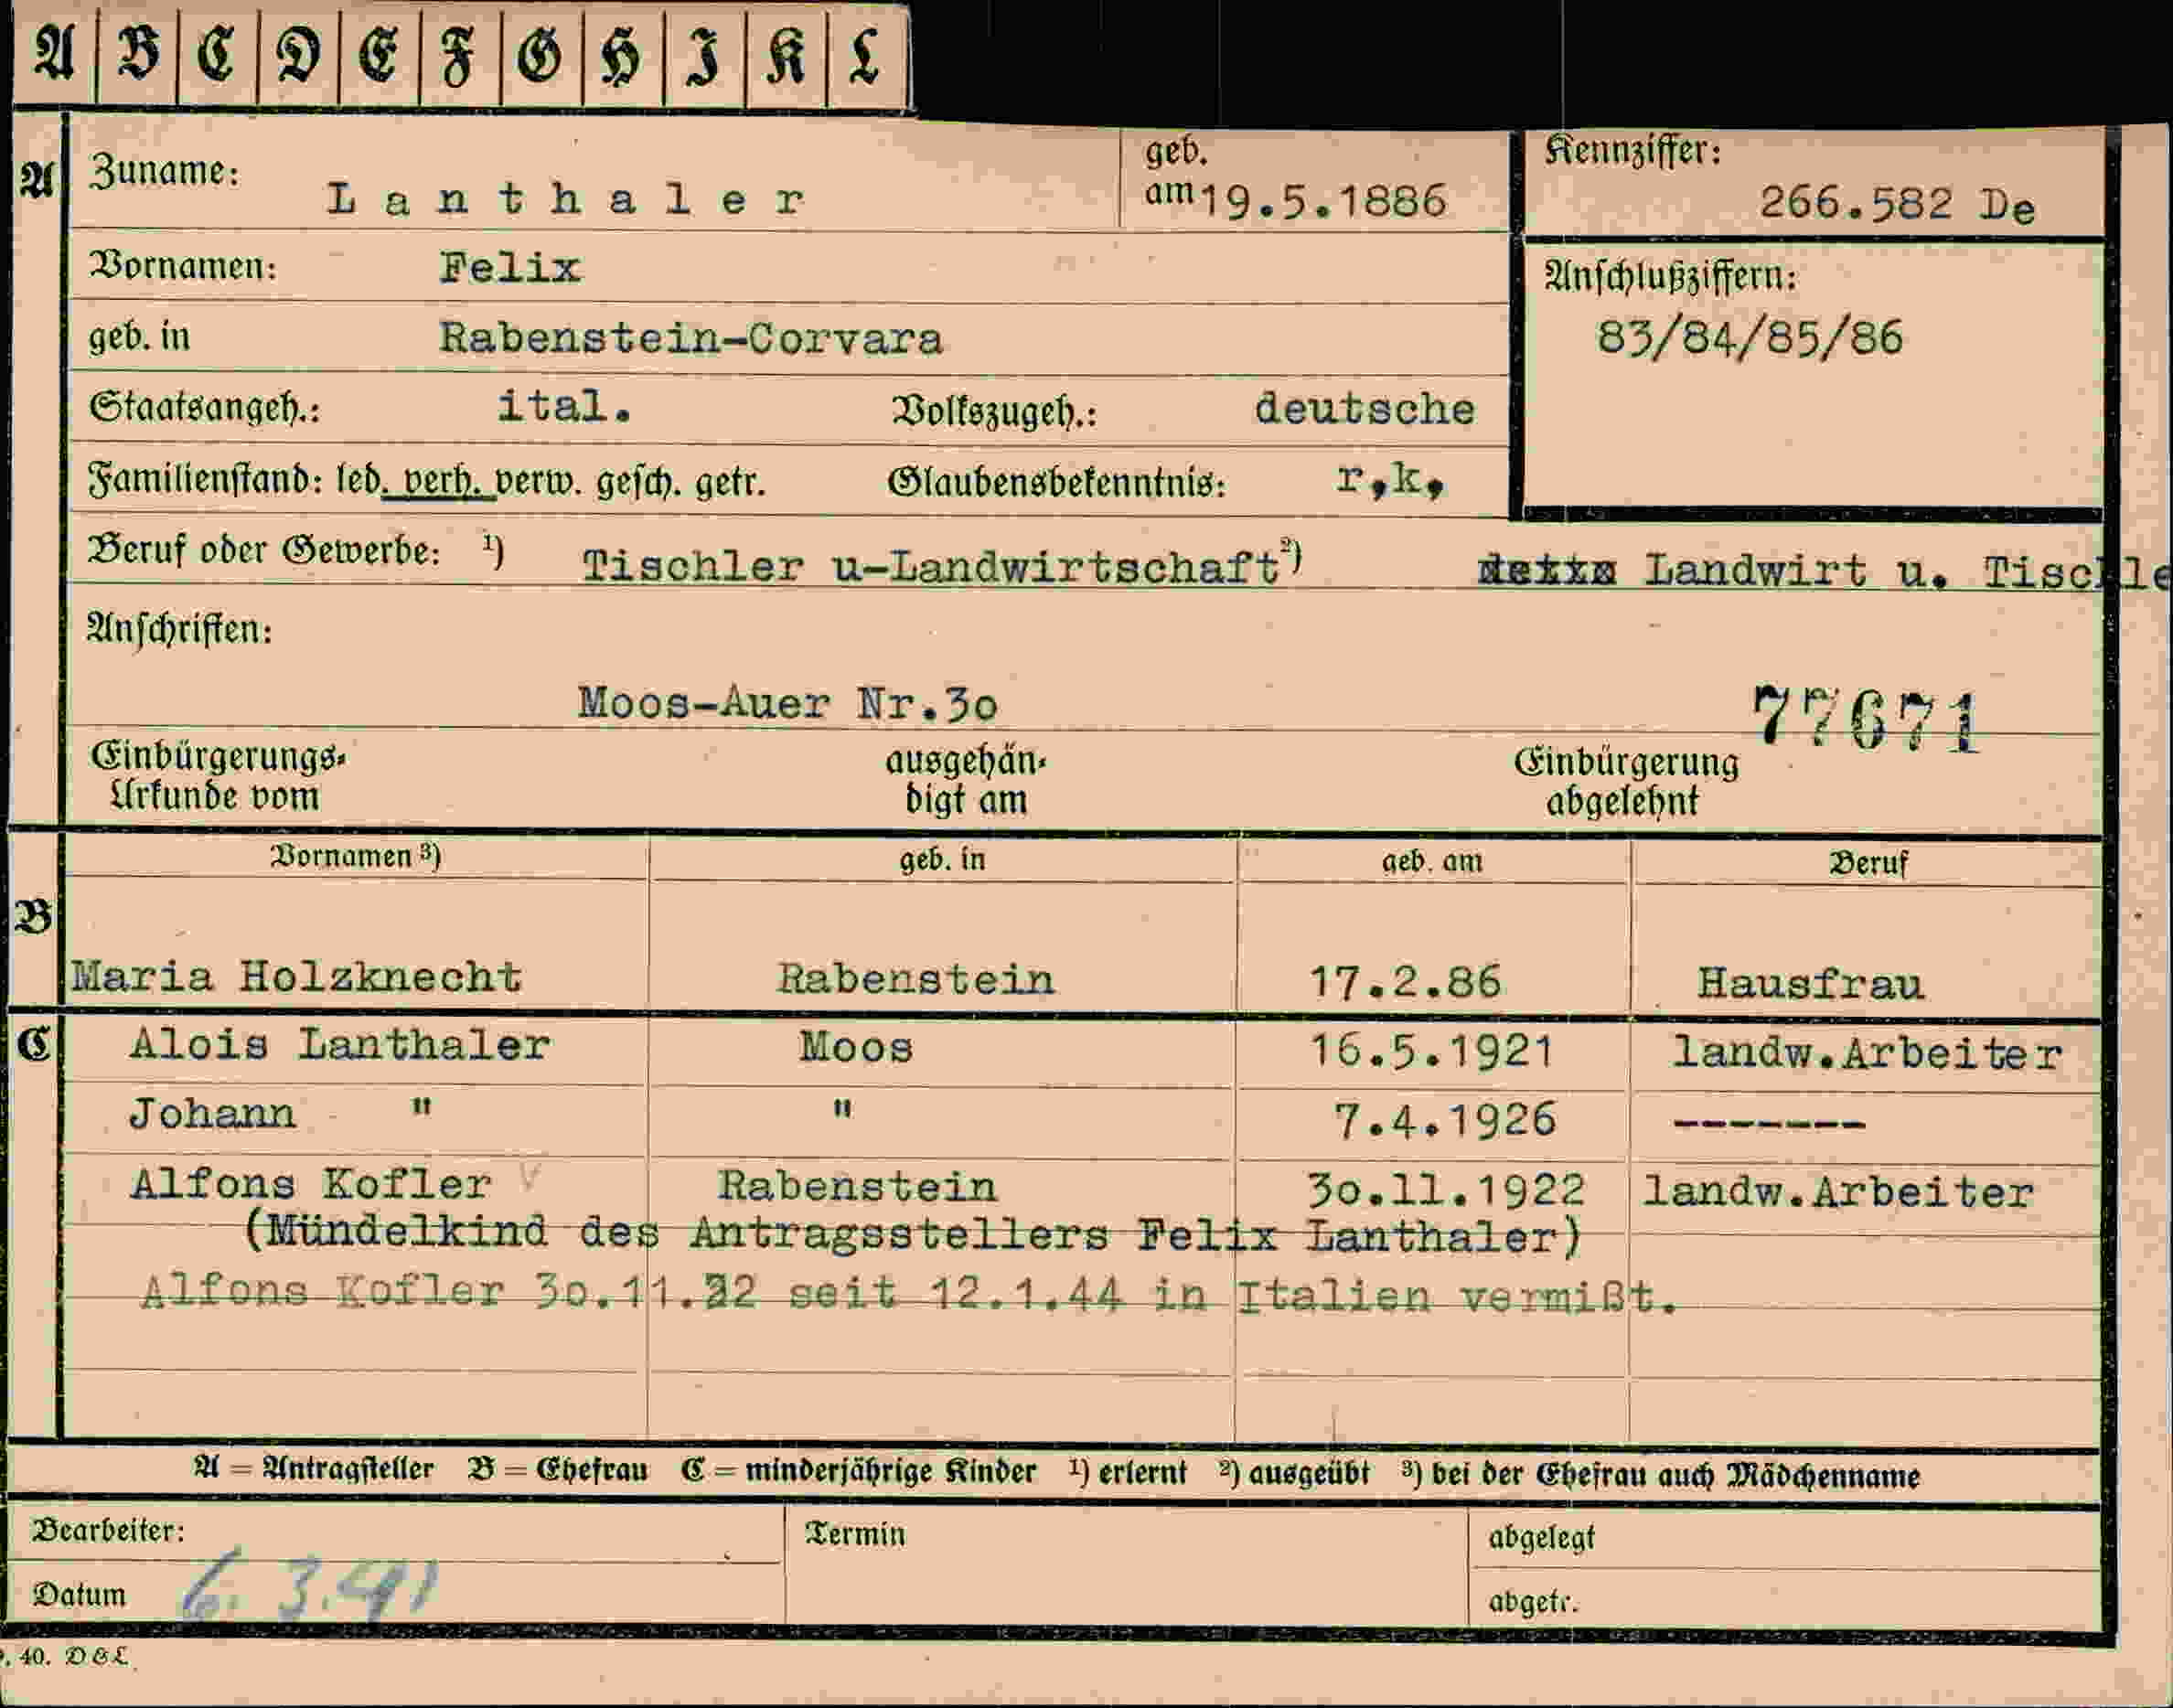 A B C D E F G H I K L
A Zuname: Lanthaler geb. am 19.5.1886 Kennziffer: 266.582 De
Vornamen: Felix Anschlußziffern:
geb. in Rabenstein-Corvara 83/84/85/86
Staatsangeh.: ital. Volkszugeh.: deutsche
Familienstand: led. verh. verw. gesch. getr. Glaubensbekenntnis: r,k,
Beruf oder Gewerbe: 1) Tischler u-Landwirtschaft 2) Landwirt u. Tischle
Anschriften:
Moos-Auer Nr.3o 77671
Einbürgerungs- ausgehän- Einbürgerung
Urkunde vom digt am abgelehnt
Vornamen 3) geb. in geb. am Beruf
B
Maria Holzknecht Rabenstein 17.2.86 Hausfrau
C Alois Lanthaler Moos 16.5.1921 landw.Arbeiter
Johann " " 7.4.1926 -------
Alfons Kofler Rabenstein 3o.11.1922 landw.Arbeiter
(Mündelkind des Antragsstellers Felix Lanthaler)
Alfons Kofler 3o.11.22 seit 12.1.44 in Italien vermißt.
A = Antragsteller B = Ehefrau C = minderjährige Kinder 1) erlernt 2) ausgeübt 3) bei der Ehefrau auch Mädchenname
Bearbeiter: Termin abgelegt
Datum 6.3.41 abgetr.
40. D&L